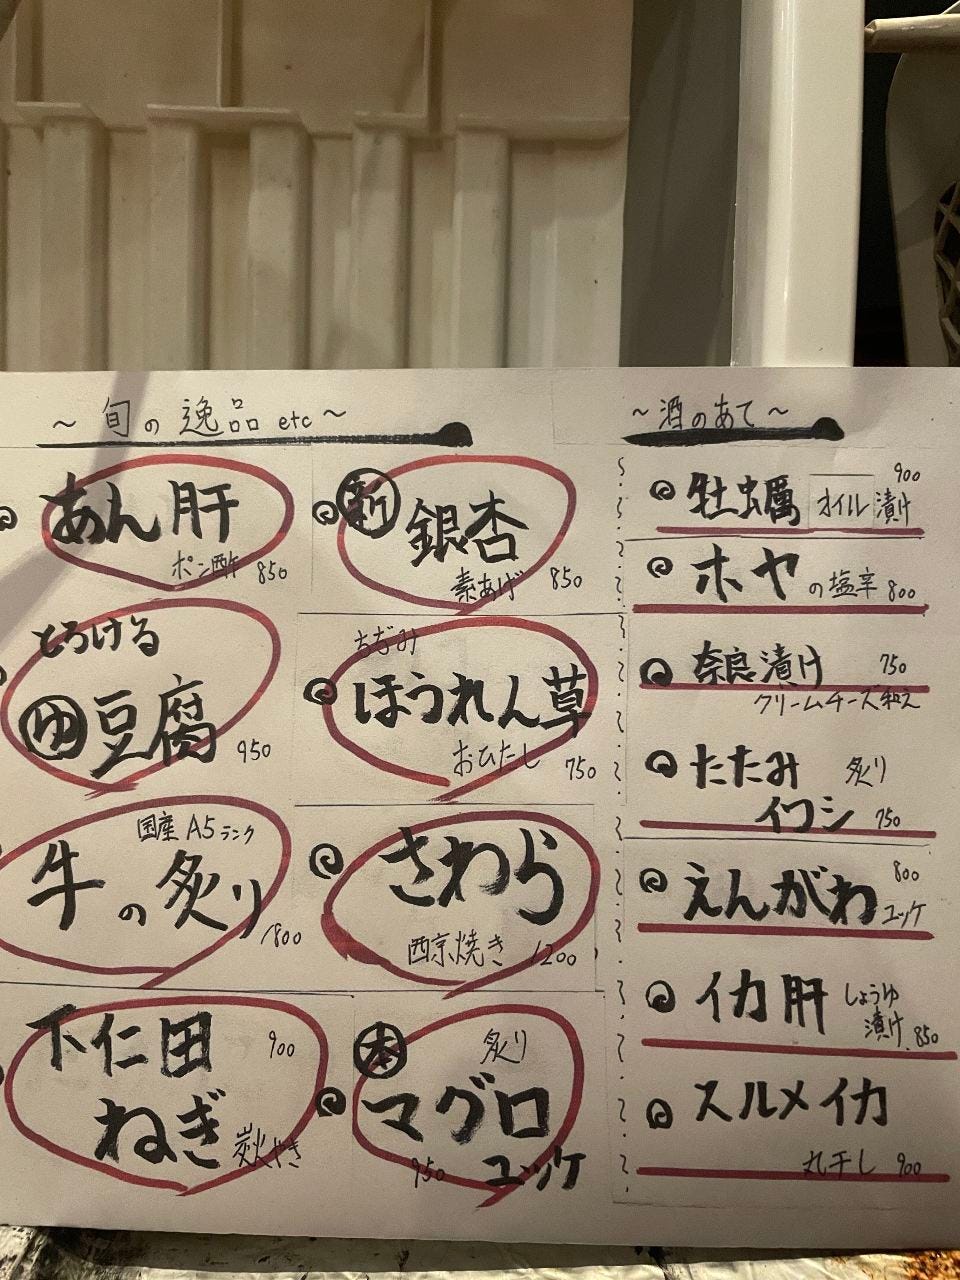 ～旬の逸品 etc～
あん肝
ポン酢 850
とろける
ゆ豆腐
950
国産A5ランク
牛の炙り
1800
下仁田
900
ねぎ 炭火やき
新銀杏
素あげ 850
ちぢみ
ほうれん草
おひたし 750
さわら
西京焼き 1200
本 炙り
マグロ
950 ユッケ
～酒のあて～
牡蠣 オイル漬け 900
ホヤの塩辛 800
奈良漬け 750
クリームチーズ和え
たたみ 炙り
イワシ 750
えんがわ 800
ユッケ
イカ肝 しょうゆ
漬け 850
スルメイカ
丸干し 900